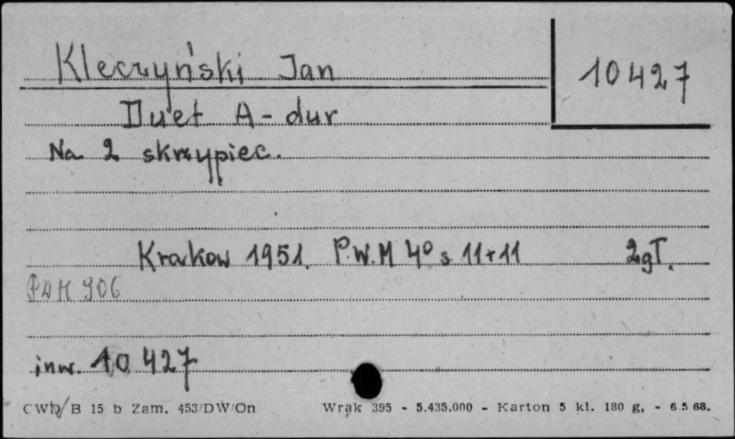 Kleczyński Jan
10427
Duet A-dur
Na 2 skrzypiec.
Krakow 1951. P.W.M 4° s 11+11 2gT.
PWM 906
inw. 10 427
CWD/B 15 b Zam. 453/DW/On Wrąk 395 - 5.435.000 - Karton 5 kl. 180 g. - 6 5 68.